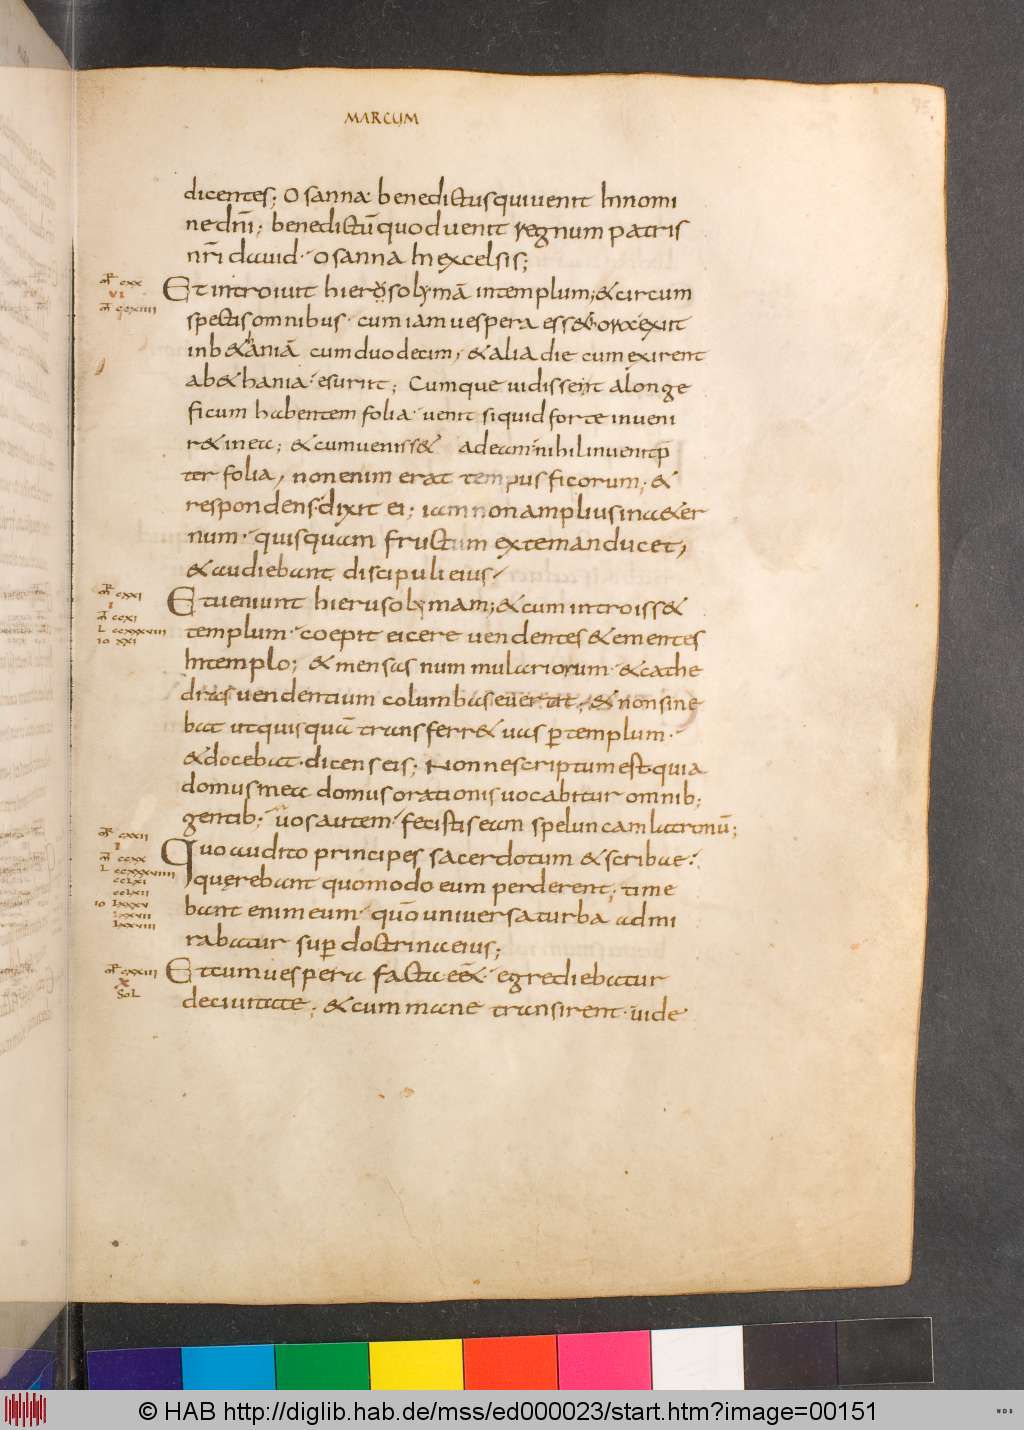 MARCUM
75
dicentes; Osanna benedictus qui uenit In nomi
ne dñi; benedictũ quod uenit regnum patris
nr̃i dauid· Osanna In excelsis;
mr̃ cxx
VI
m̃ ccxiiii
Et introiuit hierosolymã in templum; & circum
spectis omnibus· cum iam uespera ess& hora exiit
in b&haniã cum duodecim; & alia die cum exirent
a b&hania· esuriit; Cumque uidissent a longe
ficum habentem folia· uenit si quid forte inueni
r& in ea; & cum ueniss& ad eam· nihil inuenit p̃
ter folia, non enim erat tempus ficorum; &
respondens· dixit ei; iam non amplius in a&er
num· quisquam fructum ex te manducet,
& audiebant discipuli eius,
mr̃ cxxi
I
m̃ ccxi
L ccxxxviii
io xxi
Et ueniunt hierusolymam; & cum introiss&
templum· coepit eicere uendentes & ementes
In templo; & mensas nummulariorum· & cathe
dras uendentium columbas euertit; & non sine
bat ut quisquã transferr& uas ꝑ templum·
& docebat· dicens eis; Non ne scriptum est· quia
domus mea domus orationis uocabitur omnib;
gentib; uos autem· fecistis eam speluncam latronũ;
mr̃ cxxii
I
m̃ ccxx
L ccxxxviiii
ccLxi
ccLxii
io Lxxxv
Lxxvii
Lxxxviii
Quo audito principes sacerdotum & scribae·
querebant quomodo eum perderent; time
bant enim eum· quõ uniuersa turba admi
rabatur suꝑ doctrina eius;
mr̃ cxxiii
x
SoL
Et cum uespera facta eẽ&· egrediebatur
de ciuitate; & cum mane transirent· uide
© HAB http://diglib.hab.de/mss/ed000023/start.htm?image=00151
WDB